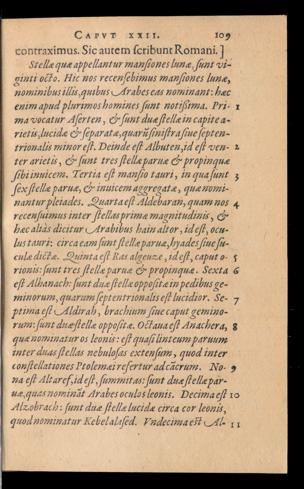 CAPVT XXII. 109
contraximus. Sic autem scribunt Romani.]
Stellæ quæ appellantur mansiones lunæ, sunt vi-
ginti octo. Hic nos recensebimus mansiones lunæ,
nominibus illis, quibus Arabes eas nominant: hæc
enim apud plurimos homines sunt notißima. Pri- 1
ma vocatur Aserten, & sunt duæ stellæ in capite a-
rietis, lucidæ & separatæ, quarũ sinistra siue septen-
trionalis minor est. Deinde est Albuten, id est ven- 2
ter arietis, & sunt tres stellæ paruæ & propinquæ
sibi inuicem. Tertia est mansio tauri, in qua sunt 3
sex stellæ paruæ, & inuicem aggregatæ, quæ nomi-
nantur pleiades. Quarta est Aldebaran, quam nos 4
recensuimus inter stellas primæ magnitudinis, &
hæc aliàs dicitur Arabibus hain altor, id est, ocu-
lus tauri: circa eam sunt stellæ paruæ, hyades siue su-
culæ dictæ. Quinta est Ras algeuze, id est, caput o- 5
rionis: sunt tres stellæ paruæ & propinquæ. Sexta 6
est Alhanach: sunt duæ stellæ oppositæ in pedibus ge-
minorum, quarum septentrionalis est lucidior. Se- 7
ptima est Aldirah, brachium siue caput gemino-
rum: sunt duæ stellæ oppositæ. Octaua est Anachera, 8
quæ nominatur os leonis: est quasi linteum paruum
inter duas stellas nebulosas extensum, quod inter
constellationes Ptolemæi refertur ad cãcrum. No- 9
na est Altaref, id est, summitas: sunt duæ stellæ par-
uæ, quas nominãt Arabes oculos leonis. Decima est 10
Alzobrach: sunt duæ stellæ lucidæ circa cor leonis,
quod nominatur Kebelalased. Vndecima est Al- 11